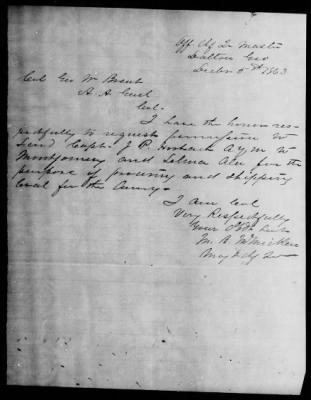 Off Chf Qr Master
Dalton Geo
Decbr 5th 1863
Col Geo Wm Brent
A. A. Genl
Col.
I have the honor res-
pectfully to request permission to
send Capt. J. P. A.Q.M. to
Montgomery and Selma Ala for the
purpose of procuring and shipping
coal for the Army.
I am Col
Very Respectfully
Your Obt Servt
M. B. McMicken
Maj & Chf Qr